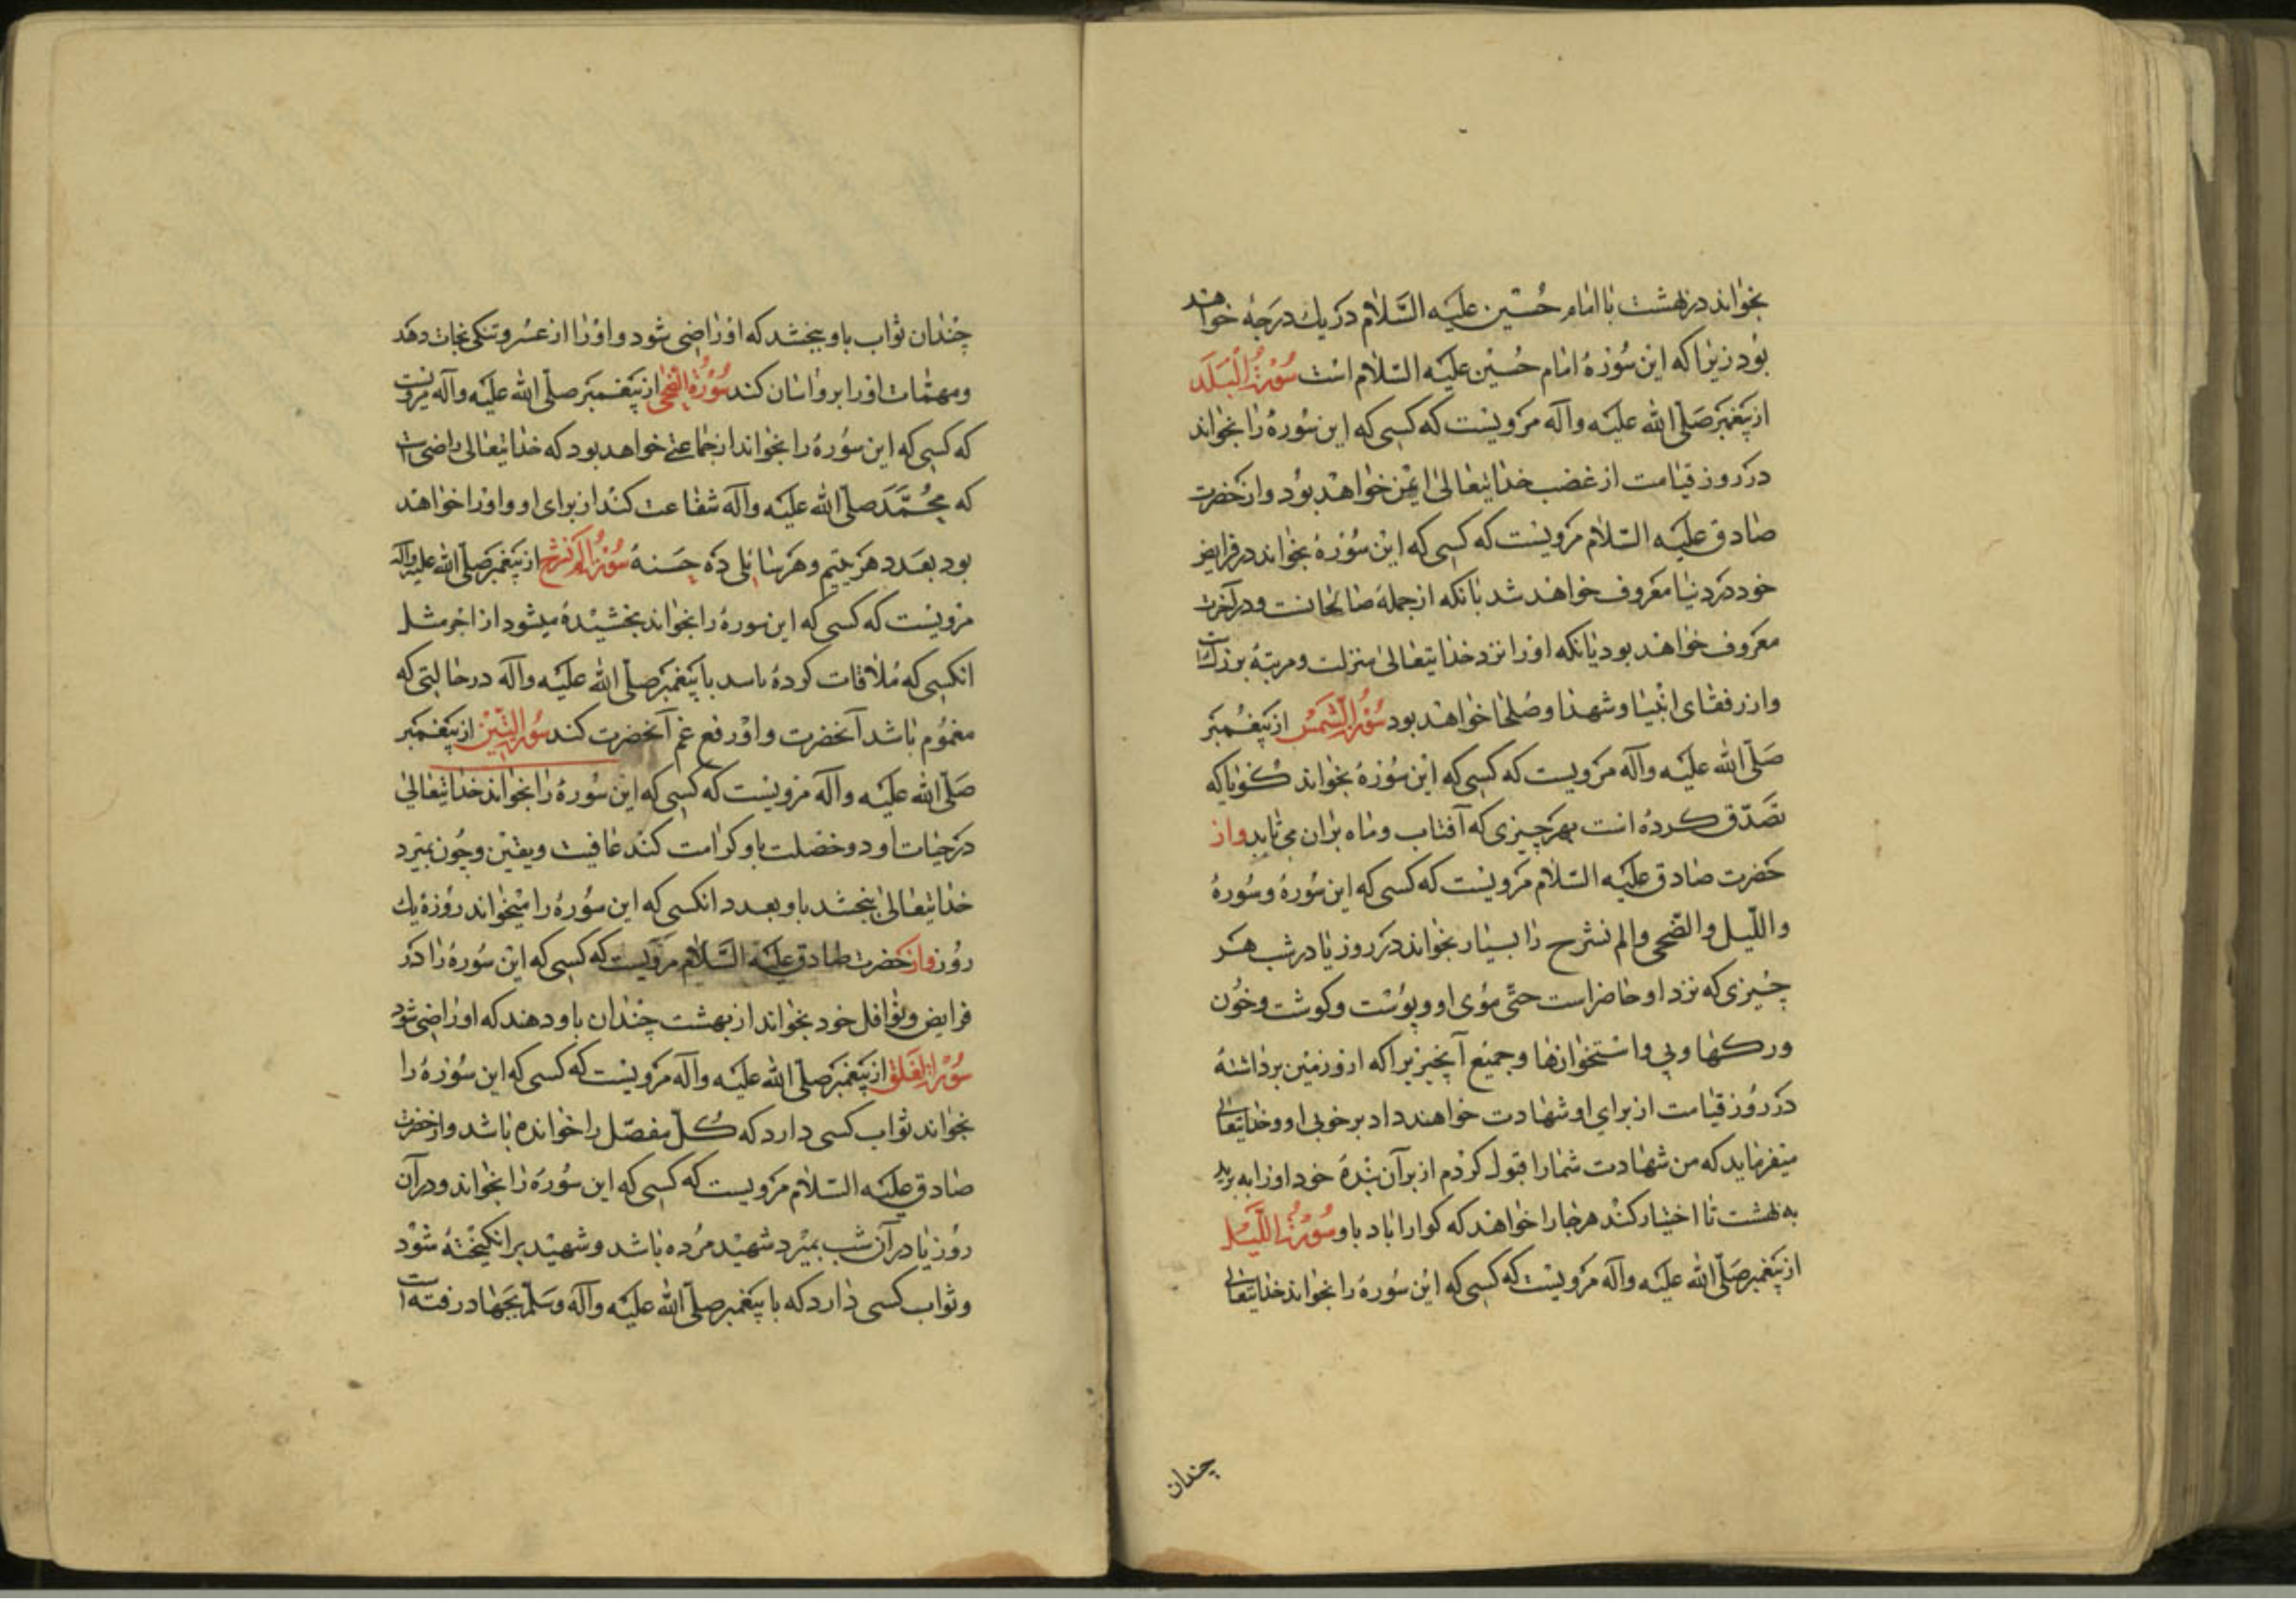 بخواند در بهشت با امام حسین علیه السّلام در یك درجه خواهند
بود زیرا که این سوره امام حسین علیه السّلام است سورة البلد
از پیغمبر صلّی الله علیه وآله مرویست که کسی که این سوره را بخواند
در روز قیامت از غضب خدایتعالی ایمن خواهد بود و از حضرت
صادق علیه السّلام مرویست که کسی که این سوره بخواند در فرایض
خود در دنیا معروف خواهد شد بانکه از جمله صالحانست و در آخرت
معروف خواهد بود بانکه او را نزد خدایتعالی منزلت و مرتبۀ بزرگ است
و از رفقای انبیا و شهدا و صلحا خواهد بود سورة الشمس از پیغمبر
صلّی الله علیه وآله مرویست که کسی که این سوره بخواند کویا که
تصدّق کرده است بهر چیزی که آفتاب و ماه بران می تابد و از
حضرت صادق علیه السّلام مرویست که کسی که این سوره و سوره
واللّیل والضّحی والم نشرح را بسیار بخواند در روز یا در شب هر
چیزی که نزد او حاضر است حتّی موی او و پوست و کوشت و خون
و رکها و پی و استخوانها و جمیع آنچیز براکه از و زمین برداشته
در روز قیامت از برای او شهادت خواهند داد بر خوبی او و خدایتعالی
میفرماید که من شهادت شما را قبول کردم از برآن بنده خود او را به برید
به بهشت تا اختیار کند هر جا را خواهد که کوارا باد باو سورة اللّیل
از پیغمبر صلّی الله علیه وآله مرویست که کسی که این سوره را بخواند خدایتعالی
چندان
چندان ثواب باو ببخشد که او راضی شود و او را از عسر و تنکی نجات دهد
و مهمّات او را برو اسان کند سورة الضّحی از پیغمبر صلّی الله علیه وآله مرویست
که کسی که این سوره را بخواند از جماعتی خواهد بود که خدایتعالی راضی است
که محمّد صلّی الله علیه وآله شفاعت کند از برای او و او را خواهد
بود بعدد هر یتیم و هر سایلی ده حسنه سورة الم نشرح از پیغمبر صلّی الله علیه وآله
مرویست که کسی که این سوره را بخواند بخشیده میشود از اجر مثل
انکسی که ملاقات کرده باسد با پیغمبر صلّی الله علیه وآله در حالتی که
مغموم باشد آنحضرت و او رفع غم آنحضرت کند سورة التّین از پیغمبر
صلّی الله علیه وآله مرویست که کسی که این سوره را بخواند خدایتعالی
در حیات او دو خصلت باو کرامت کند عافیت و یقین و چون بمیرد
خدایتعالی ببخشد باو بعدد انکسی که این سوره را میخواند روزۀ یك
روز و از حضرت صادق علیه السّلام مرویست که کسی که این سوره را در
فرایض و نوافل خود بخواند از بهشت چندان باو دهند که او راضی شود
سورة العلق از پیغمبر صلّی الله علیه وآله مرویست که کسی که این سوره را
بخواند ثواب کسی دارد که کلّ مفصّل را خوانده باشد و از حضرت
صادق علیه السّلام مرویست که کسی که این سوره را بخواند و در آن
روز یا در آن شب بمیرد شهید مرده باشد و شهید برانکیخته شود
و ثواب کسی دارد که با پیغمبر صلّی الله علیه وآله وسلّم بجهاد رفته است